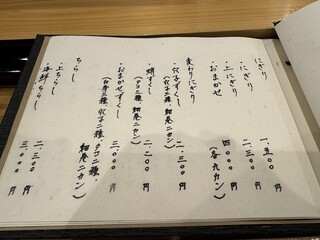 にぎり
・にぎり 一、五〇〇円
・上にぎり 二、三〇〇円
・おまかせ 四、〇〇〇円
(各九カン)
変わりにぎり
・穴子ずくし 二、三〇〇円
(穴子二種、細巻ニカン)
・蛸ずくし 二、二〇〇円
(タコ二種、細巻ニカン)
・おまかせずくし 三、〇〇〇円
(白身三種、穴子二種、タコ二種、細巻ニカン)
ちらし
・上ちらし 二、三〇〇円
・海鮮ちらし 三、〇〇〇円